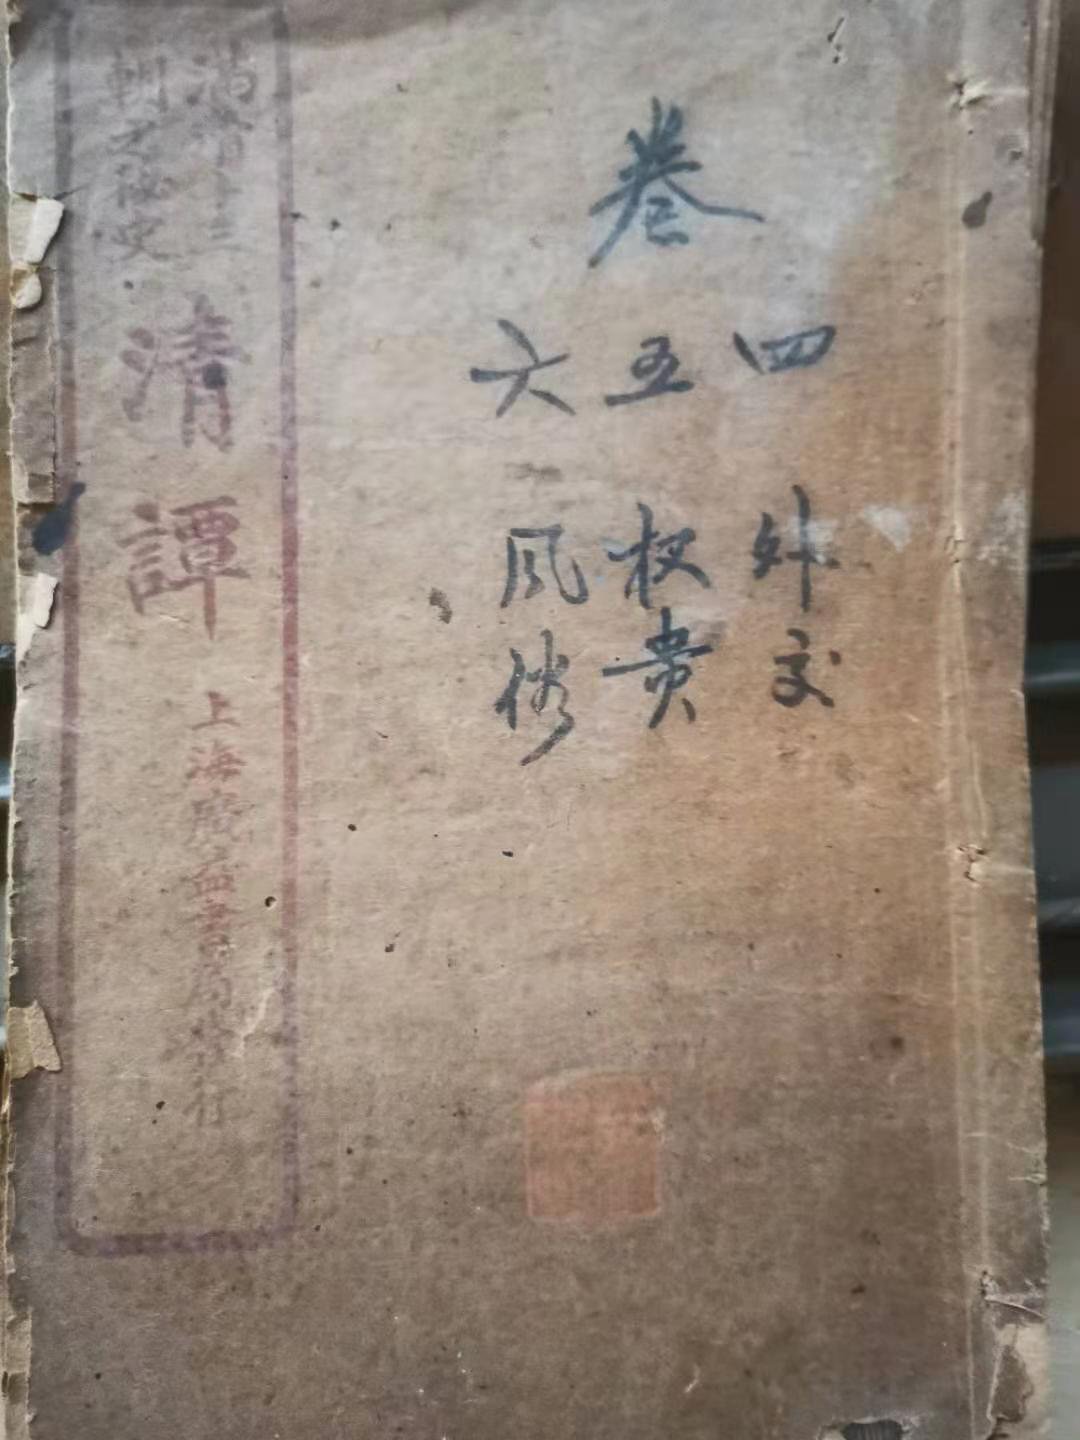 卷
四 外交
五 权贵
六 风俗
满清十三
朝之秘史
清譚
上海廣益書局發行